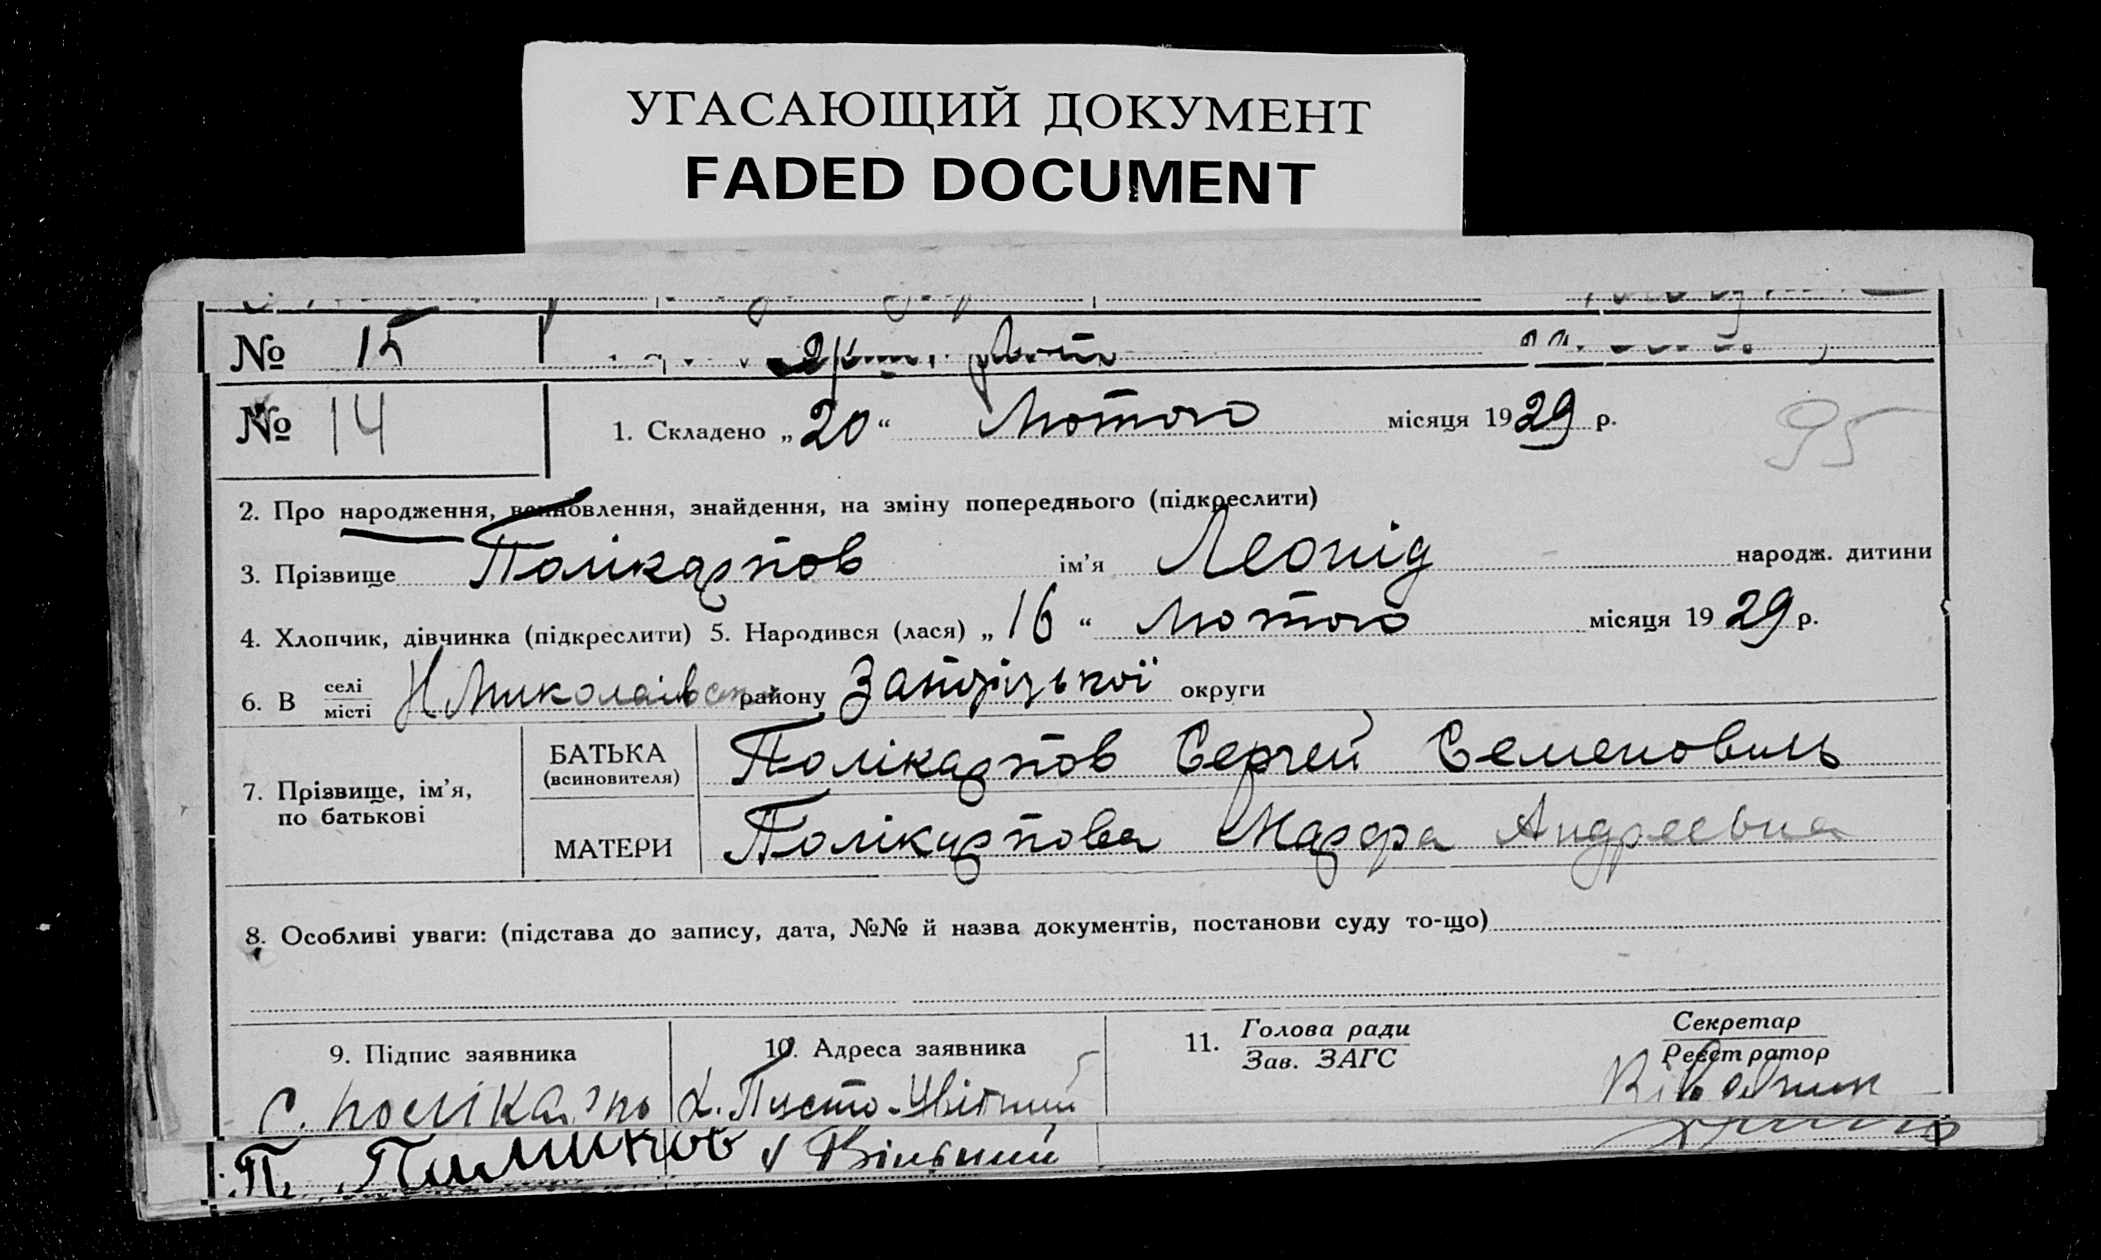 УГАСАЮЩИЙ ДОКУМЕНТ
FADED DOCUMENT
№ 15
№ 14
1. Складено „20“ Лютого місяця 1929 р.
95
2. Про народження, всиновлення, знайдення, на зміну попереднього (підкреслити)
3. Прізвище Полікарпов ім'я Леонід народж. дитини
4. Хлопчик, дівчинка (підкреслити) 5. Народився (лася) „16“ Лютого місяця 1929 р.
6. В селі місті Н Миколаївськ району Запорізької округи
7. Прізвище, ім'я, по батькові
БАТЬКА (всиновителя) Полікарпов Сергей Семенович
МАТЕРИ Полікарпова Марфа Андреевна
8. Особливі уваги: (підстава до запису, дата, №№ й назва документів, постанови суду то-що)
9. Підпис заявника
10. Адреса заявника
11. Голова ради Зав. ЗАГС
Секретар Реєстратор
С. Полікарпо